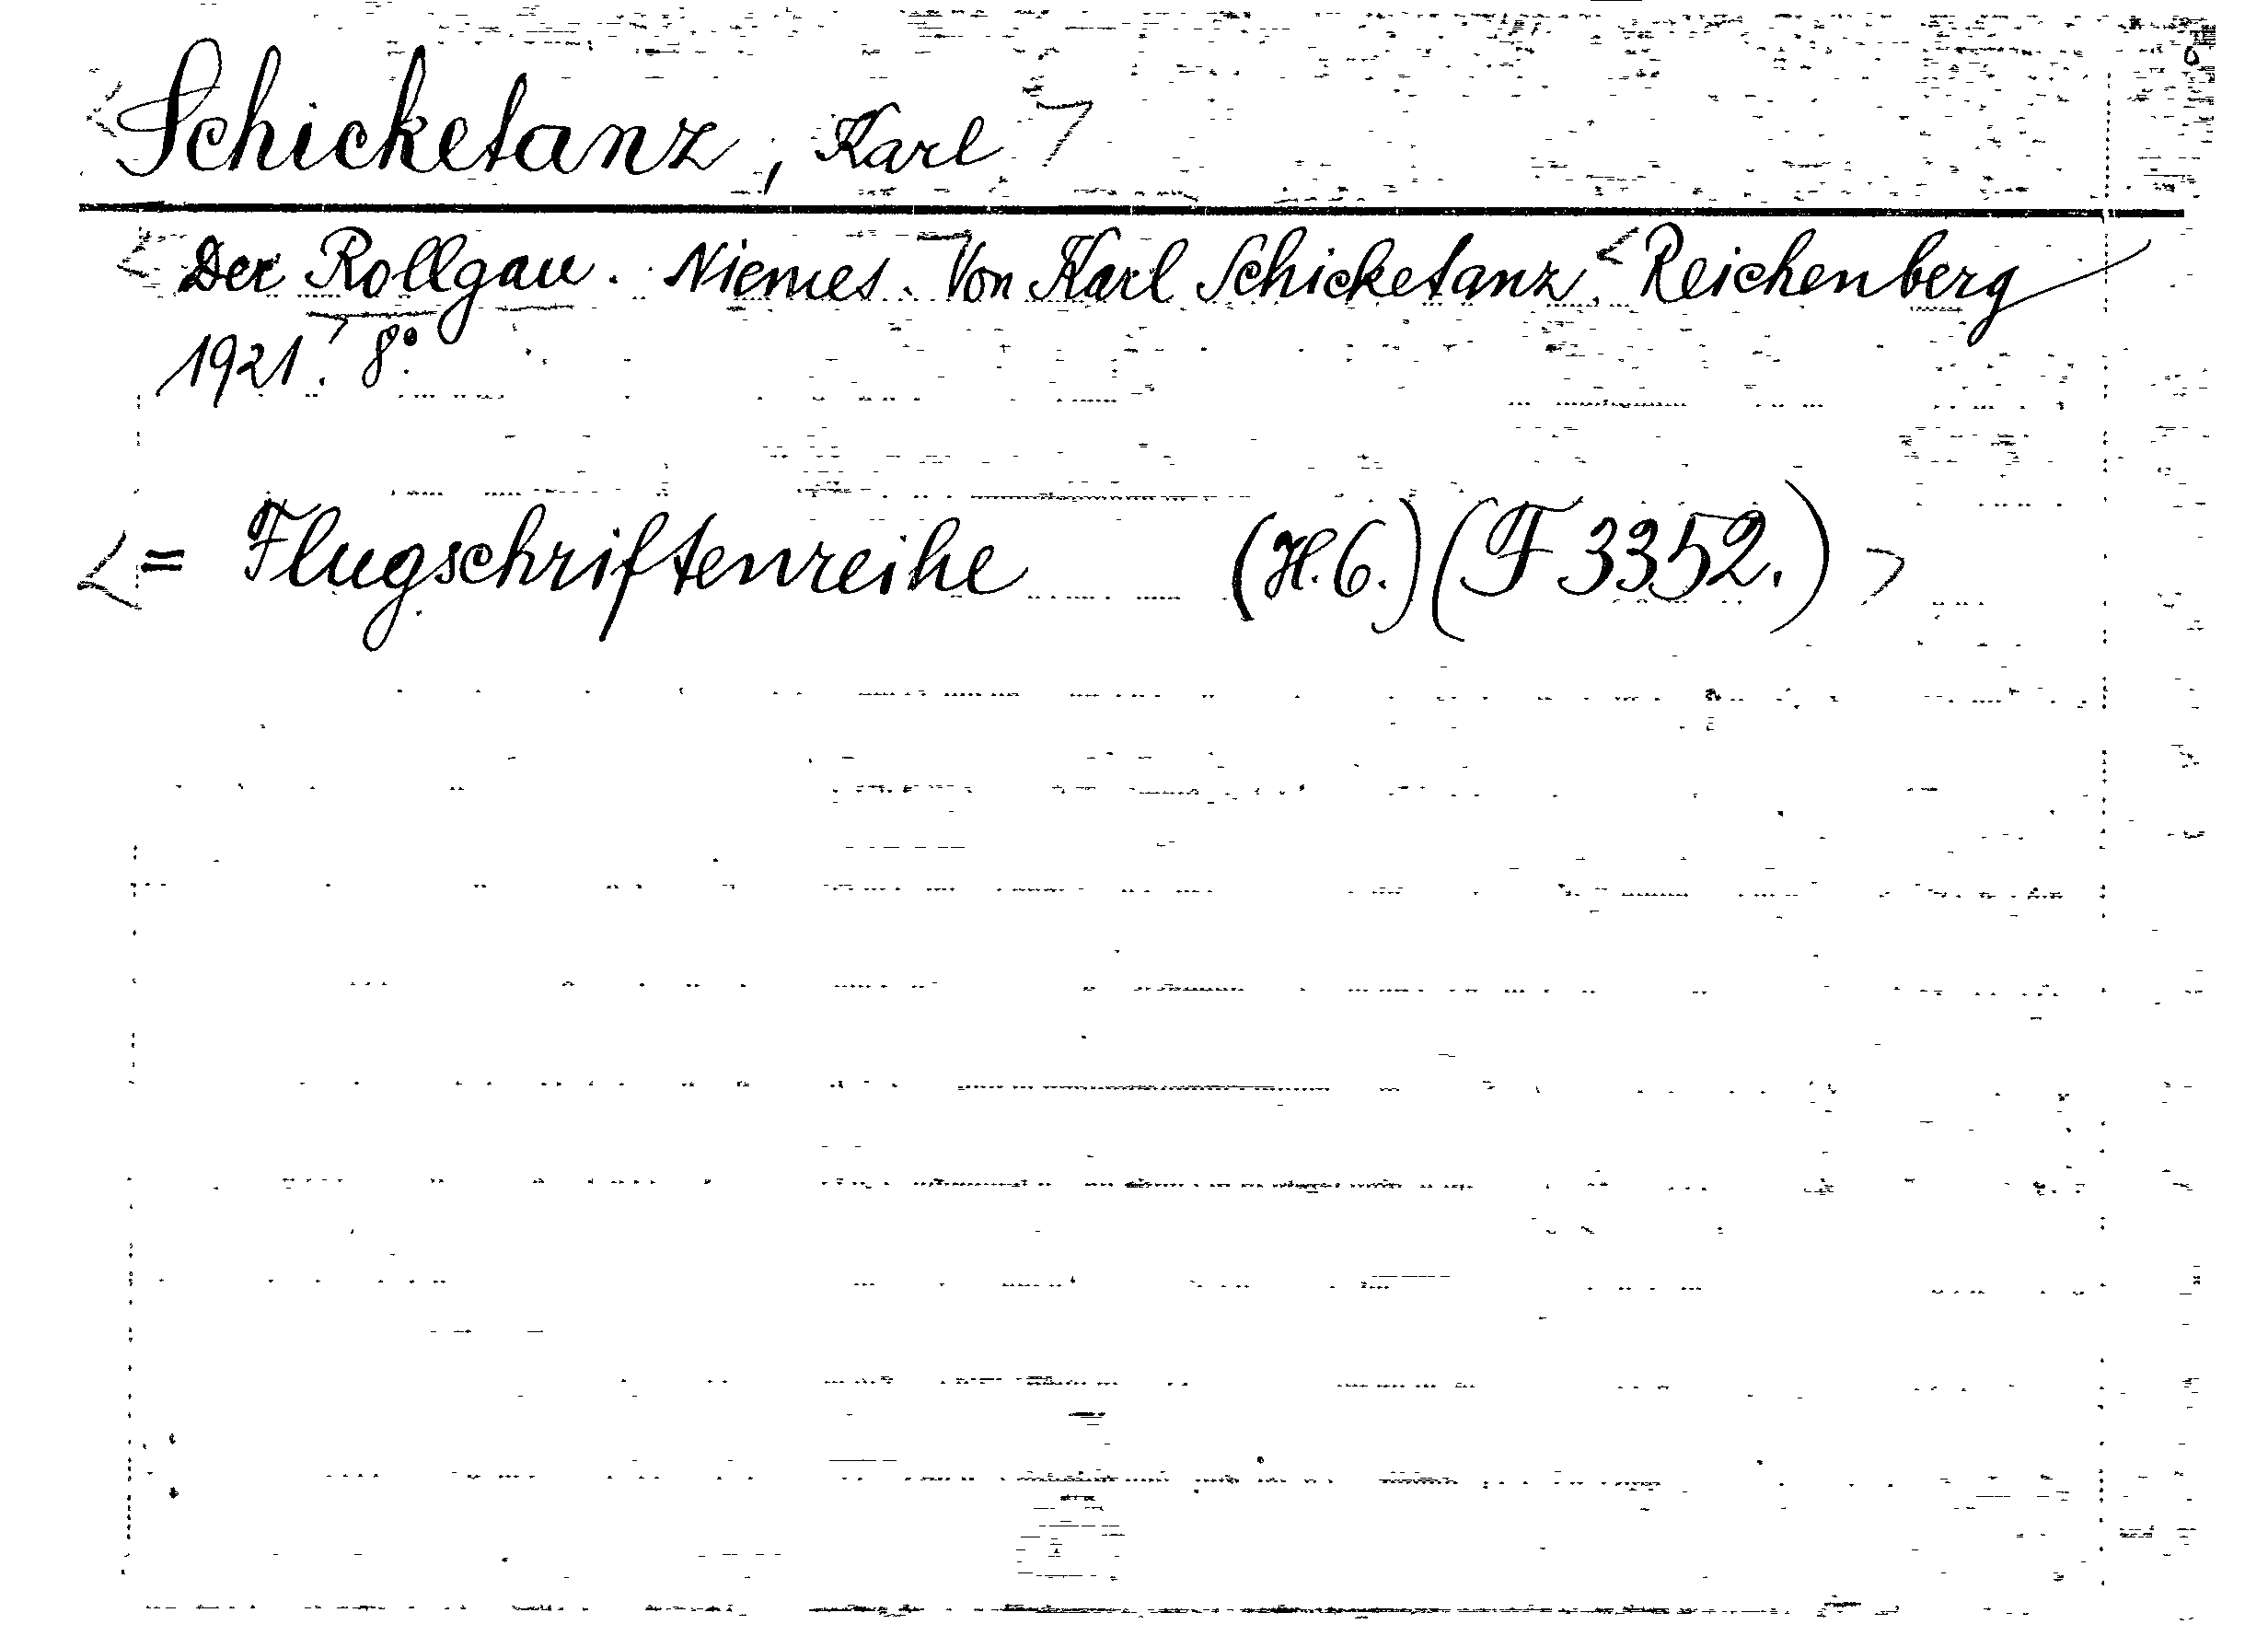 <Schicketanz, Karl>
<Der Rollgau. Niemes.> Von Karl Schicketanz. <Reichenberg
1921.> 8°.
<= Flugschriftenreihe (H. 6.) (F 3352.)>